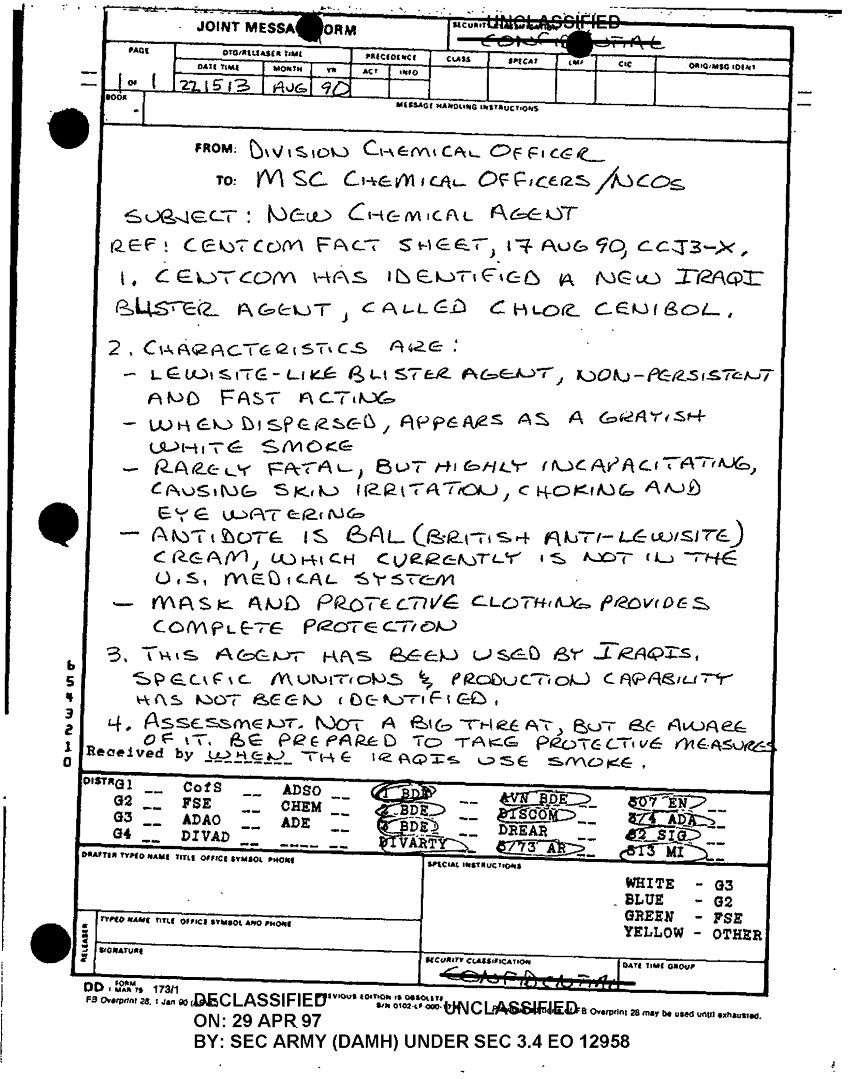 JOINT MESSA ORM
SECURITY CLASSIFICATION
UNCLASSIFIED
CONFIDENTIAL
PAGE
DTG/RELEASER TIME
PRECEDENCE
CLASS
SPECAT
LMF
CIC
ORIG/MSG IDENT
DATE TIME
MONTH
YR
ACT
INFO
1 OF 1
221513
AUG
90
BOOK
MESSAGE HANDLING INSTRUCTIONS
FROM: DIVISION CHEMICAL OFFICER
TO: MSC CHEMICAL OFFICERS/NCOS
SUBJECT: NEW CHEMICAL AGENT
REF: CENTCOM FACT SHEET, 17 AUG 90, CCJ3-X.
1. CENTCOM HAS IDENTIFIED A NEW IRAQI
BLISTER AGENT, CALLED CHLOR CENIBOL.
2. CHARACTERISTICS ARE:
- LEWISITE-LIKE BLISTER AGENT, NON-PERSISTENT
AND FAST ACTING
- WHEN DISPERSED, APPEARS AS A GRAYISH
WHITE SMOKE
- RARELY FATAL, BUT HIGHLY INCAPACITATING,
CAUSING SKIN IRRITATION, CHOKING AND
EYE WATERING
- ANTIDOTE IS BAL (BRITISH ANTI-LEWISITE)
CREAM, WHICH CURRENTLY IS NOT IN THE
U.S. MEDICAL SYSTEM
- MASK AND PROTECTIVE CLOTHING PROVIDES
COMPLETE PROTECTION
3. THIS AGENT HAS BEEN USED BY IRAQIS.
SPECIFIC MUNITIONS & PRODUCTION CAPABILITY
HAS NOT BEEN IDENTIFIED.
4. ASSESSMENT. NOT A BIG THREAT, BUT BE AWARE
OF IT. BE PREPARED TO TAKE PROTECTIVE MEASURES
Received by WHEN THE IRAQIS USE SMOKE.
6
5
4
3
2
1
0
DISTR
G1 __ CofS __ ADSO __ 1 BDE __ AVN BDE __ 307 EN __
G2 __ FSE __ CHEM __ 2 BDE __ DISCOM __ 3/4 ADA __
G3 __ ADAO __ ADE __ 3 BDE __ DREAR __ 82 SIG __
G4 __ DIVAD __ ____ __ DIVARTY __ 3/73 AR __ 313 MI __
DRAFTER TYPED NAME TITLE OFFICE SYMBOL PHONE
SPECIAL INSTRUCTIONS
WHITE - G3
BLUE - G2
GREEN - FSE
YELLOW - OTHER
RELEASER
TYPED NAME TITLE OFFICE SYMBOL AND PHONE
SIGNATURE
SECURITY CLASSIFICATION
CONFIDENTIAL
DATE TIME GROUP
DD FORM 1 MAR 79 173/1
PREVIOUS EDITION IS OBSOLETE
FB Overprint 28, 1 Jan 90
S/N 0102-LF-000-
UNCLASSIFIED
of FB Overprint 28 may be used until exhausted.
DECLASSIFIED
ON: 29 APR 97
BY: SEC ARMY (DAMH) UNDER SEC 3.4 EO 12958